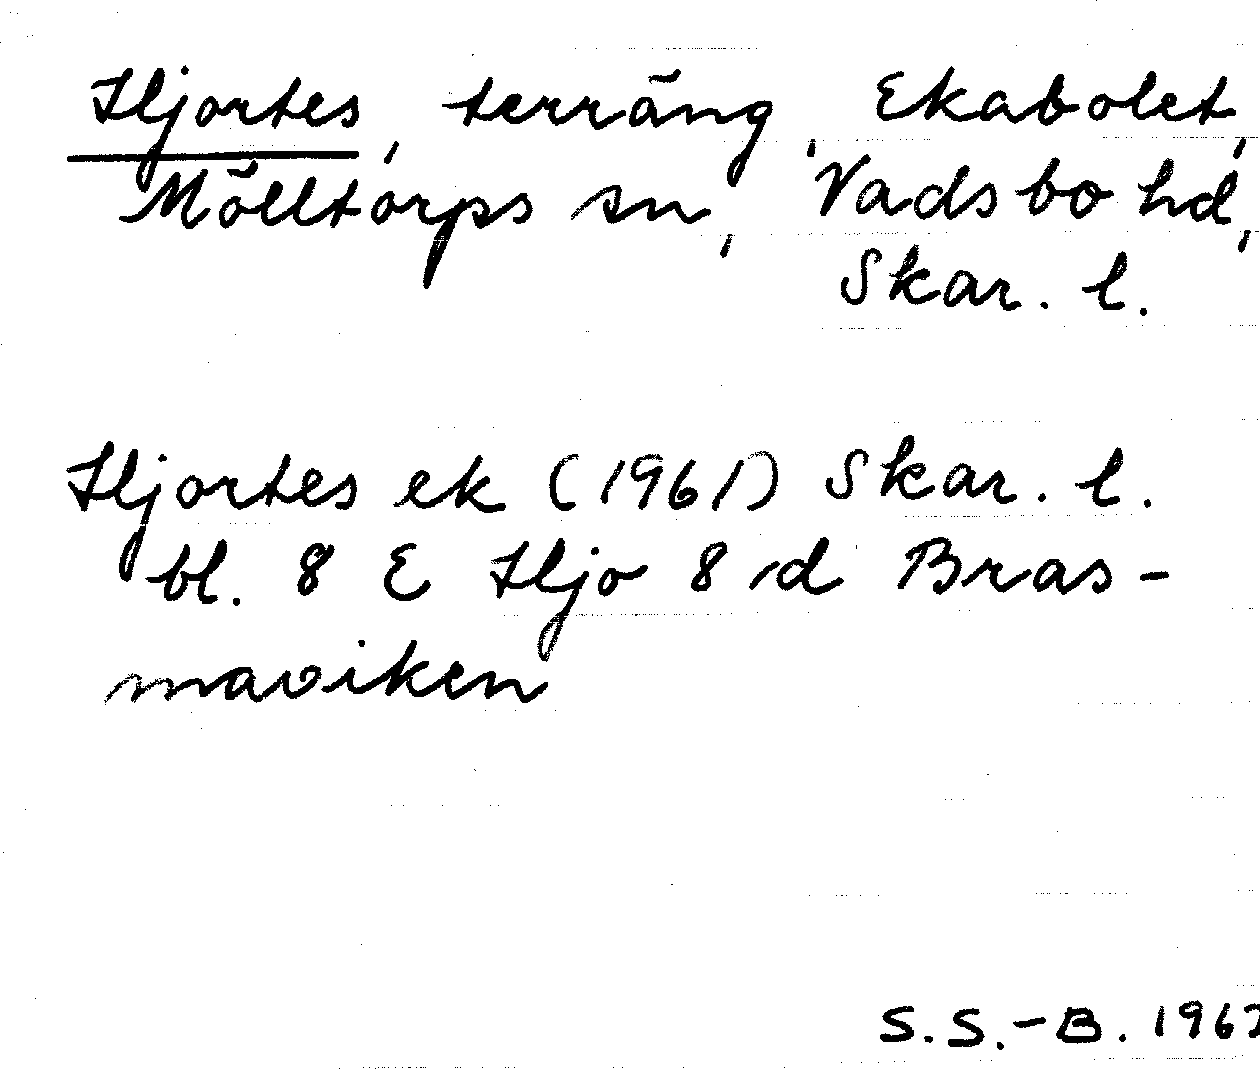 Hjortes, terräng, Ekabolet,
Mölltorps sn, Vadsbo hd,
Skar. l.
Hjortes ek (1961) Skar. l.
bl. 8 E Hjo 8 d Bras-
maviken
S.S.-B. 1967